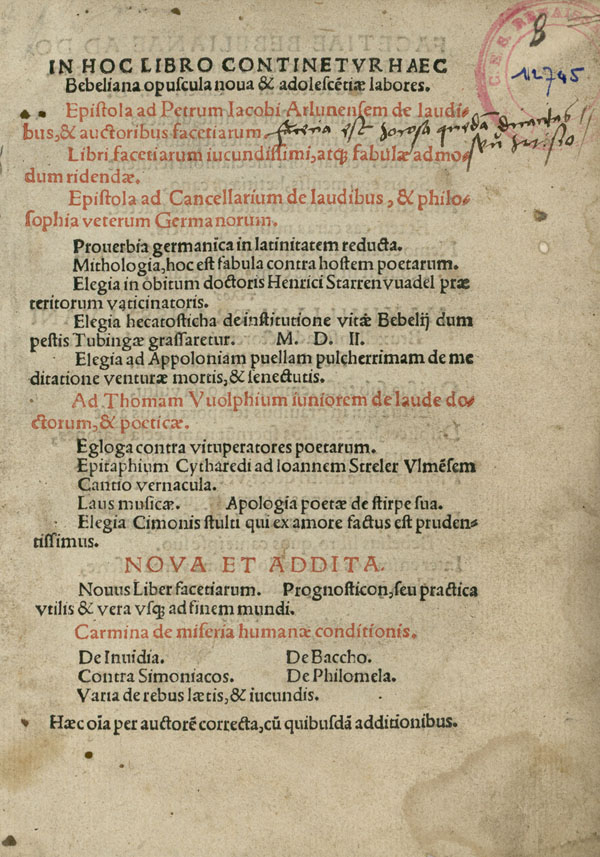 8
112745
IN HOC LIBRO CONTINETVR HAEC
Bebeliana opuscula noua & adolescẽtiæ labores.
Epistola ad Petrum Iacobi Arlunensem de laudi-
bus, & auctoribus facetiarum.
Libri facetiarum iucundissimi, atq; fabulæ admo
dum ridendæ.
Epistola ad Cancellarium de laudibus, & philo-
sophia veterum Germanorum.
Prouerbia germanica in latinitatem reducta.
Mithologia, hoc est fabula contra hostem poetarum.
Elegia in obitum doctoris Henrici Starrenvuadel præ
teritorum vaticinatoris.
Elegia hecatosticha de institutione vitæ Bebelij dum
pestis Tubingæ grassaretur. M. D. II.
Elegia ad Appoloniam puellam pulcherrimam de me
ditatione venturæ mortis, & senectutis.
Ad Thomam Vuolphium iuniorem de laude do-
ctorum, & poeticæ.
Egloga contra vituperatores poetarum.
Epitaphium Cytharedi ad Ioannem Streler Vlmẽsem
Cantio vernacula.
Laus musicæ. Apologia poetæ de stirpe sua.
Elegia Cimonis stulti qui ex amore factus est pruden-
tissimus.
NOVA ET ADDITA.
Nouus Liber facetiarum. Prognosticon, seu practica
vtilis & vera vsq; ad finem mundi.
Carmina de miseria humanæ conditionis.
De Inuidia. De Baccho.
Contra Simoniacos. De Philomela.
Varia de rebus lætis, & iucundis.
Hæc oĩa per auctorẽ correcta, cũ quibusdã additionibus.